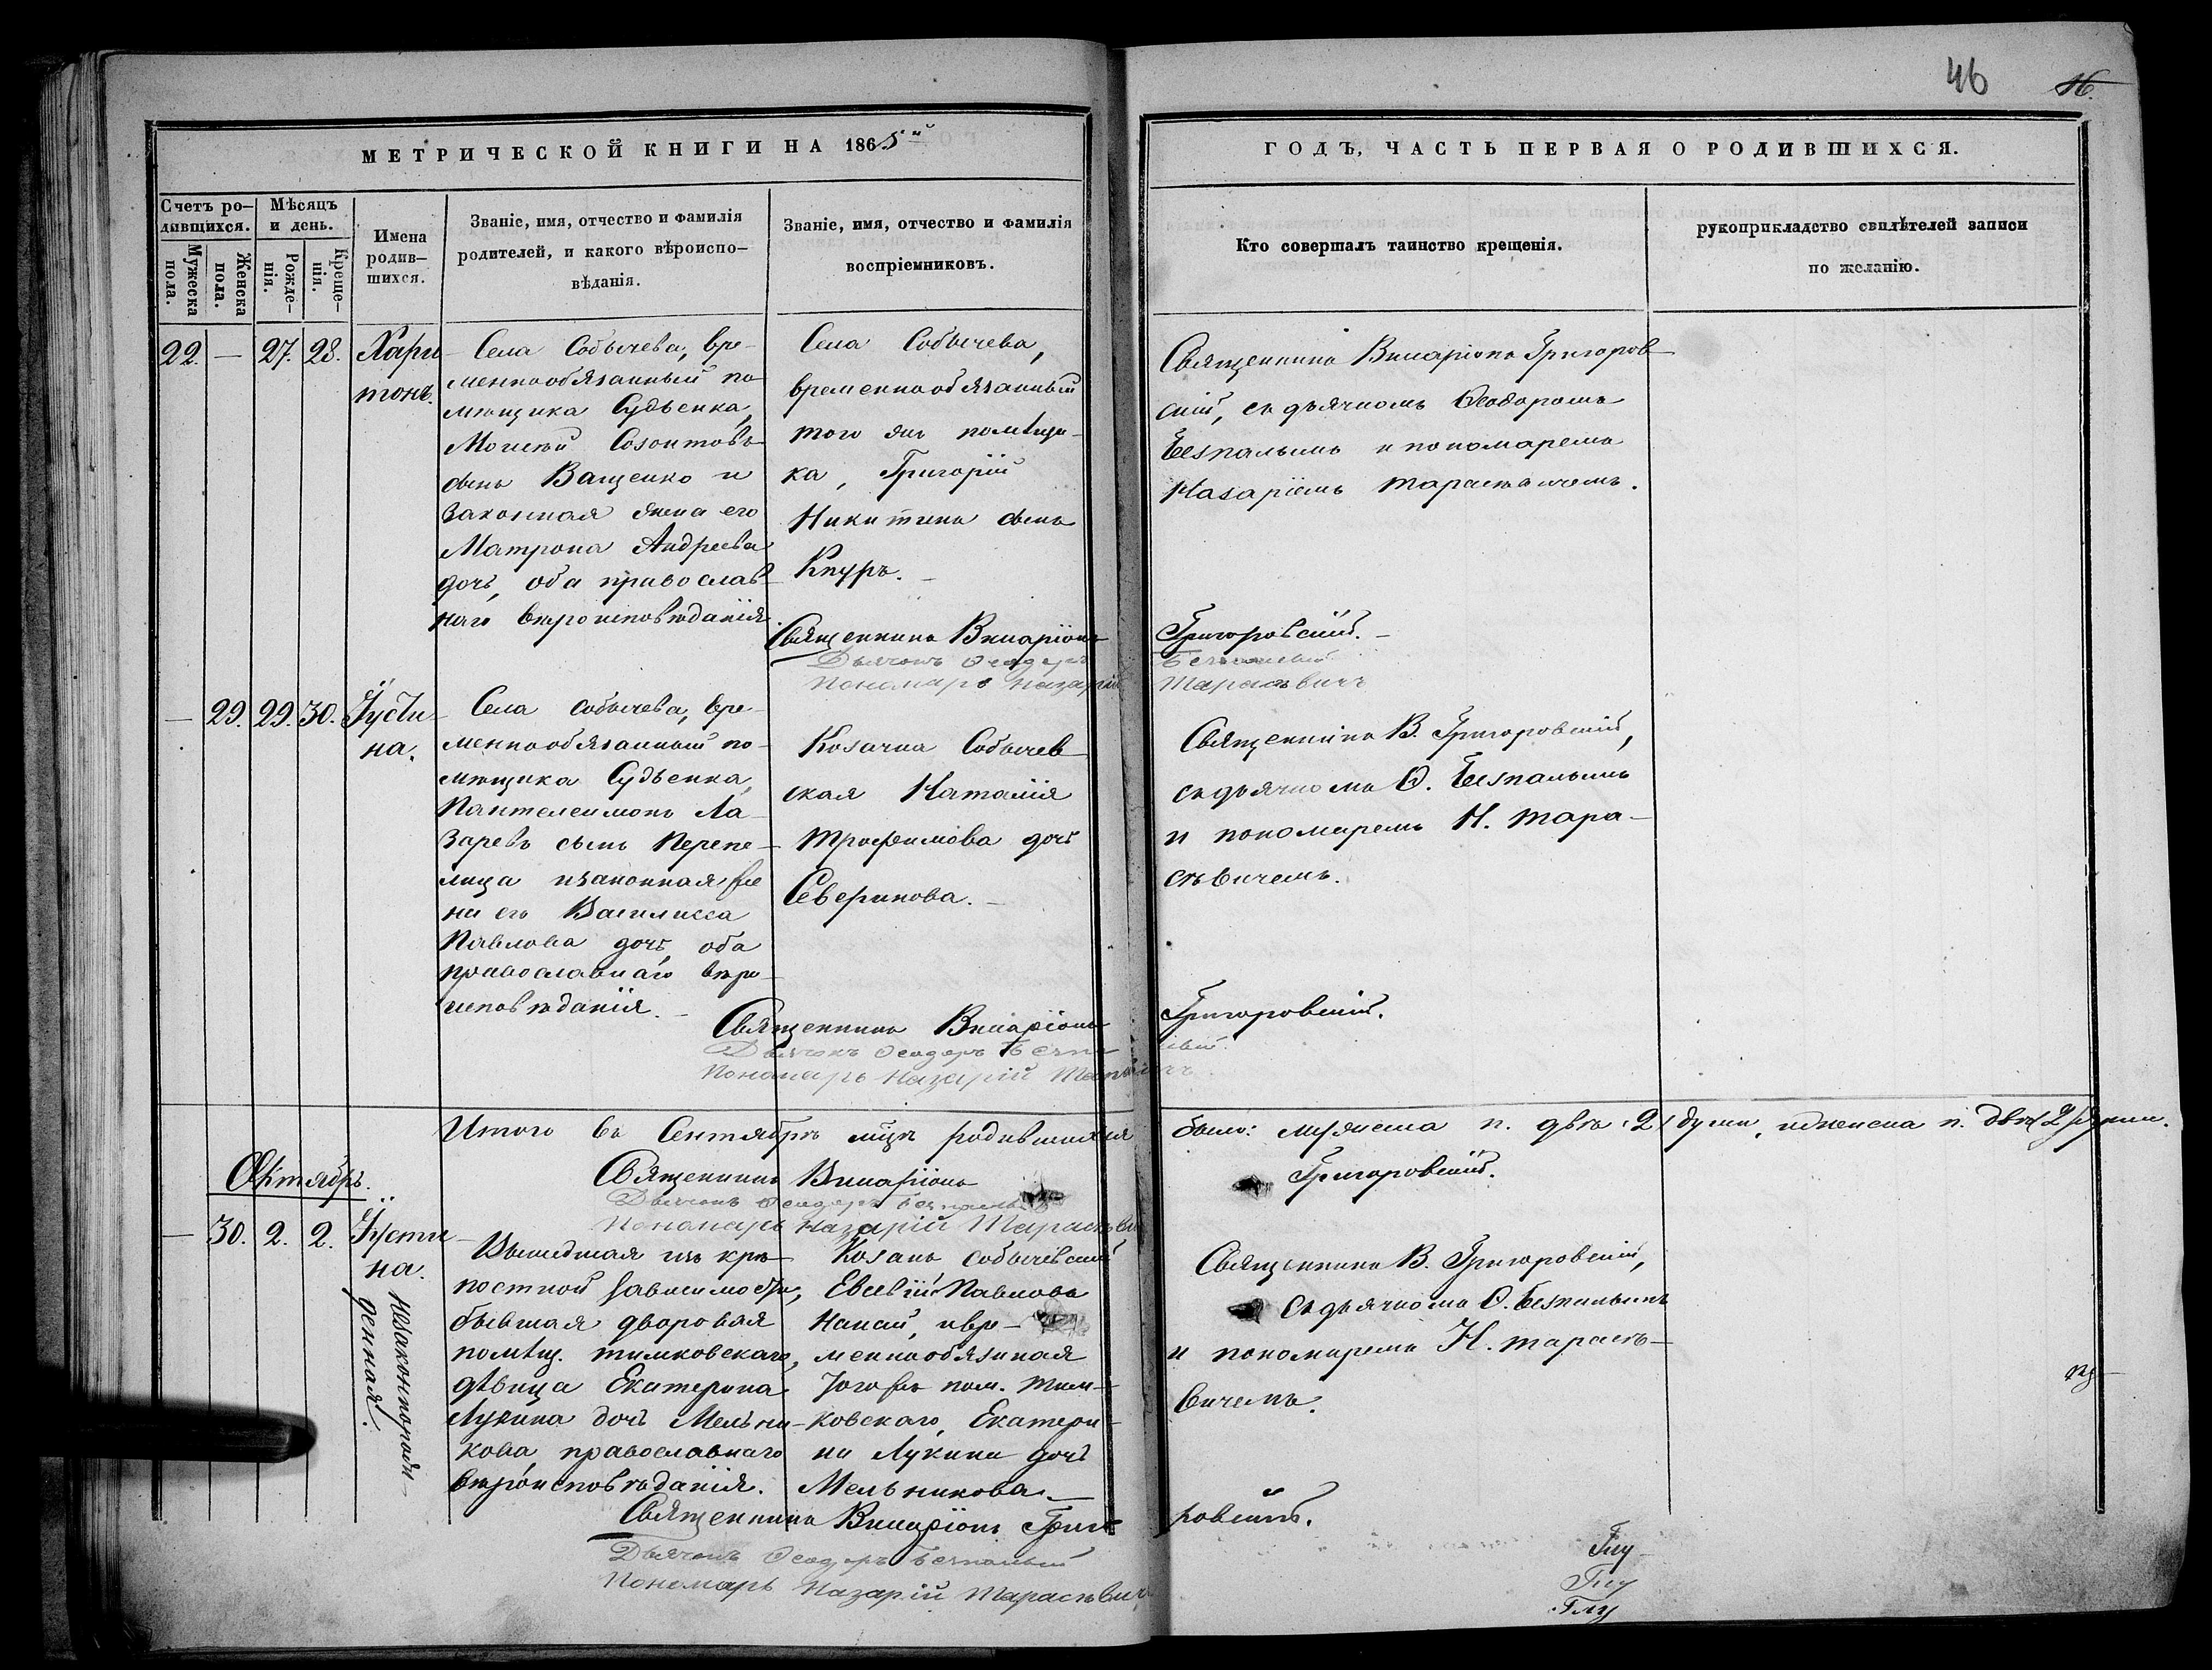 46
16.
МЕТРИЧЕСКОЙ КНИГИ НА 1865й
ГОДЪ, ЧАСТЬ ПЕРВАЯ О РОДИВШИХСЯ.
Счетъ ро-
дывщихся.
Мужеска
пола.
Женска
пола.
Мѣсяцъ
и день.
Рожде-
нія.
Креще-
нія.
Имена
родив-
шихся.
Званіе, имя, отчество и фамилія
родителей, и какого вѣроиспо-
вѣданія.
Званіе, имя, отчество и фамилія
воспріемниковъ.
Кто совершалъ таинство крещенія.
рукоприкладство свидѣтелей записи
по желанію.
22. — 27. 28. Хари-
тонъ.
Села Собычева, вре-
меннообязанный по-
мѣщика Судьенка,
Моисей Созонтовъ
сынъ Ващенко и
законная жена его
Матрона Андреева
дочь, оба православ-
наго вѣроисповѣданія.
Села Собычева,
временнообязанный
того же помѣщи-
ка, Григорій
Никитинъ сынъ
Кнуръ. —
Священникъ Виларіонъ Григоров-
скій, съ дьячкомъ Ѳеодоромъ
Безпалымъ и пономаремъ
Назаріемъ Тарасѣвичемъ.
Священникъ Виларіонъ Григоровскій. —
Дьячокъ Ѳеодоръ Безпалый
Пономарь Назарій Тарасѣвичъ
— 29. 29. 30. Іусти-
на.
Села Собычева, вре-
меннообязанный по-
мѣщика Судьенка,
Пантелеимонъ Ла-
заревъ сынъ Перепе-
лица и законная же-
на его Василисса
Павлова дочь, оба
православнаго вѣро-
исповѣданія. —
Козачка Собычев-
ская Наталія
Трофимова дочь
Северинова. —
Священникъ В. Григоровскій,
съ дьячкомъ Ѳ. Безпалымъ
и пономаремъ Н. Тара-
сѣвичемъ.
Священникъ Виларіонъ Григоровскій.
Дьячокъ Ѳеодоръ Безпалый.
Пономарь Назарій Тарасѣвичъ.
Итого въ Сентябрѣ мцѣ родившихся было: мужеска п. двѣ (2) души, и женска п. двѣ (2) души.
Священникъ Виларіонъ Григоровскій.
Дьячокъ Ѳеодоръ Безпалый
Пономарь Назарій Тарасѣвичъ
Октябрь.
— 30. 2. 2. Іусти-
на.
Незаконнорож-
денная.
Вышедшая изъ крѣ-
постной зависимости,
бывшая дворовая
помѣщ. Тимковскаго,
дѣвица Екатерина
Лукина дочь Мельни-
кова, православнаго
вѣроисповѣданія.
Козакъ Собычевскій
Евсевій Павловъ
Папай, и вре-
меннообязаная
того же пом. Тим-
ковскаго, Екатери-
на Лукина дочь
Мельникова. —
Священникъ В. Григоровскій,
съ дьячкомъ Ѳ. Безпалымъ
и пономаремъ Н. Тарасѣ-
вичемъ.
Священникъ Виларіонъ Григоровскій.
Дьячокъ Ѳеодоръ Безпалый
Пономарь Назарій Тарасѣвичъ
Глу-
Глу
Глу